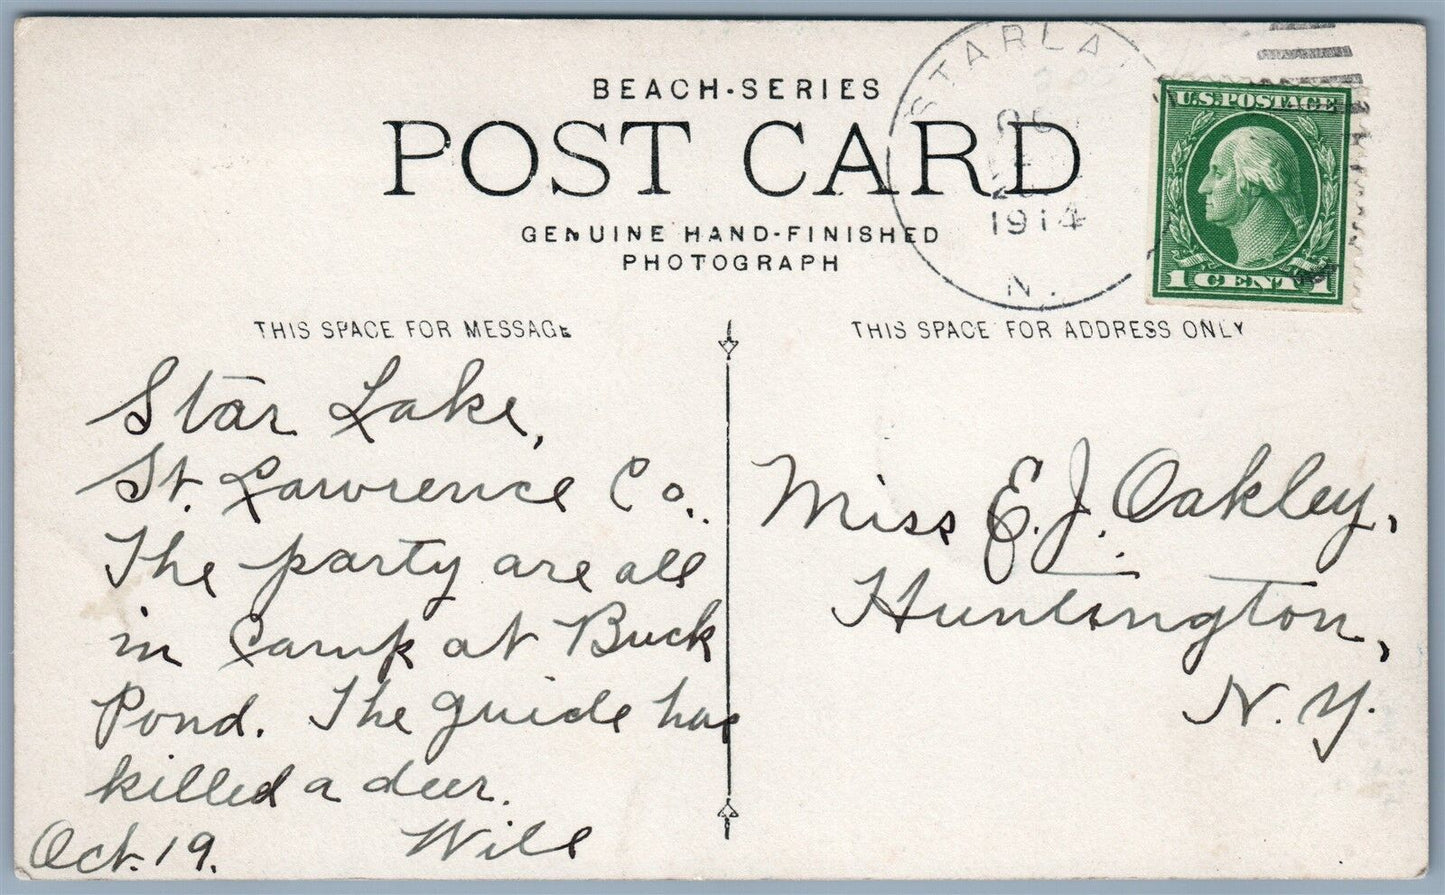 BEACH-SERIES
POST CARD
GENUINE HAND-FINISHED
PHOTOGRAPH
STARLA
1914
N.
U.S. POSTAGE
1 CENT 1
THIS SPACE FOR MESSAGE
Star Lake,
St. Lawrence Co.
The party are all
in Camp at Buck
Pond. The guide has
killed a deer.
Oct. 19. Will
THIS SPACE FOR ADDRESS ONLY
Miss E. J. Oakley,
Huntington,
N. Y.